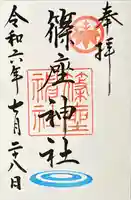 奉拝
篠座神社
篠座神社
令和六年七月二十八日